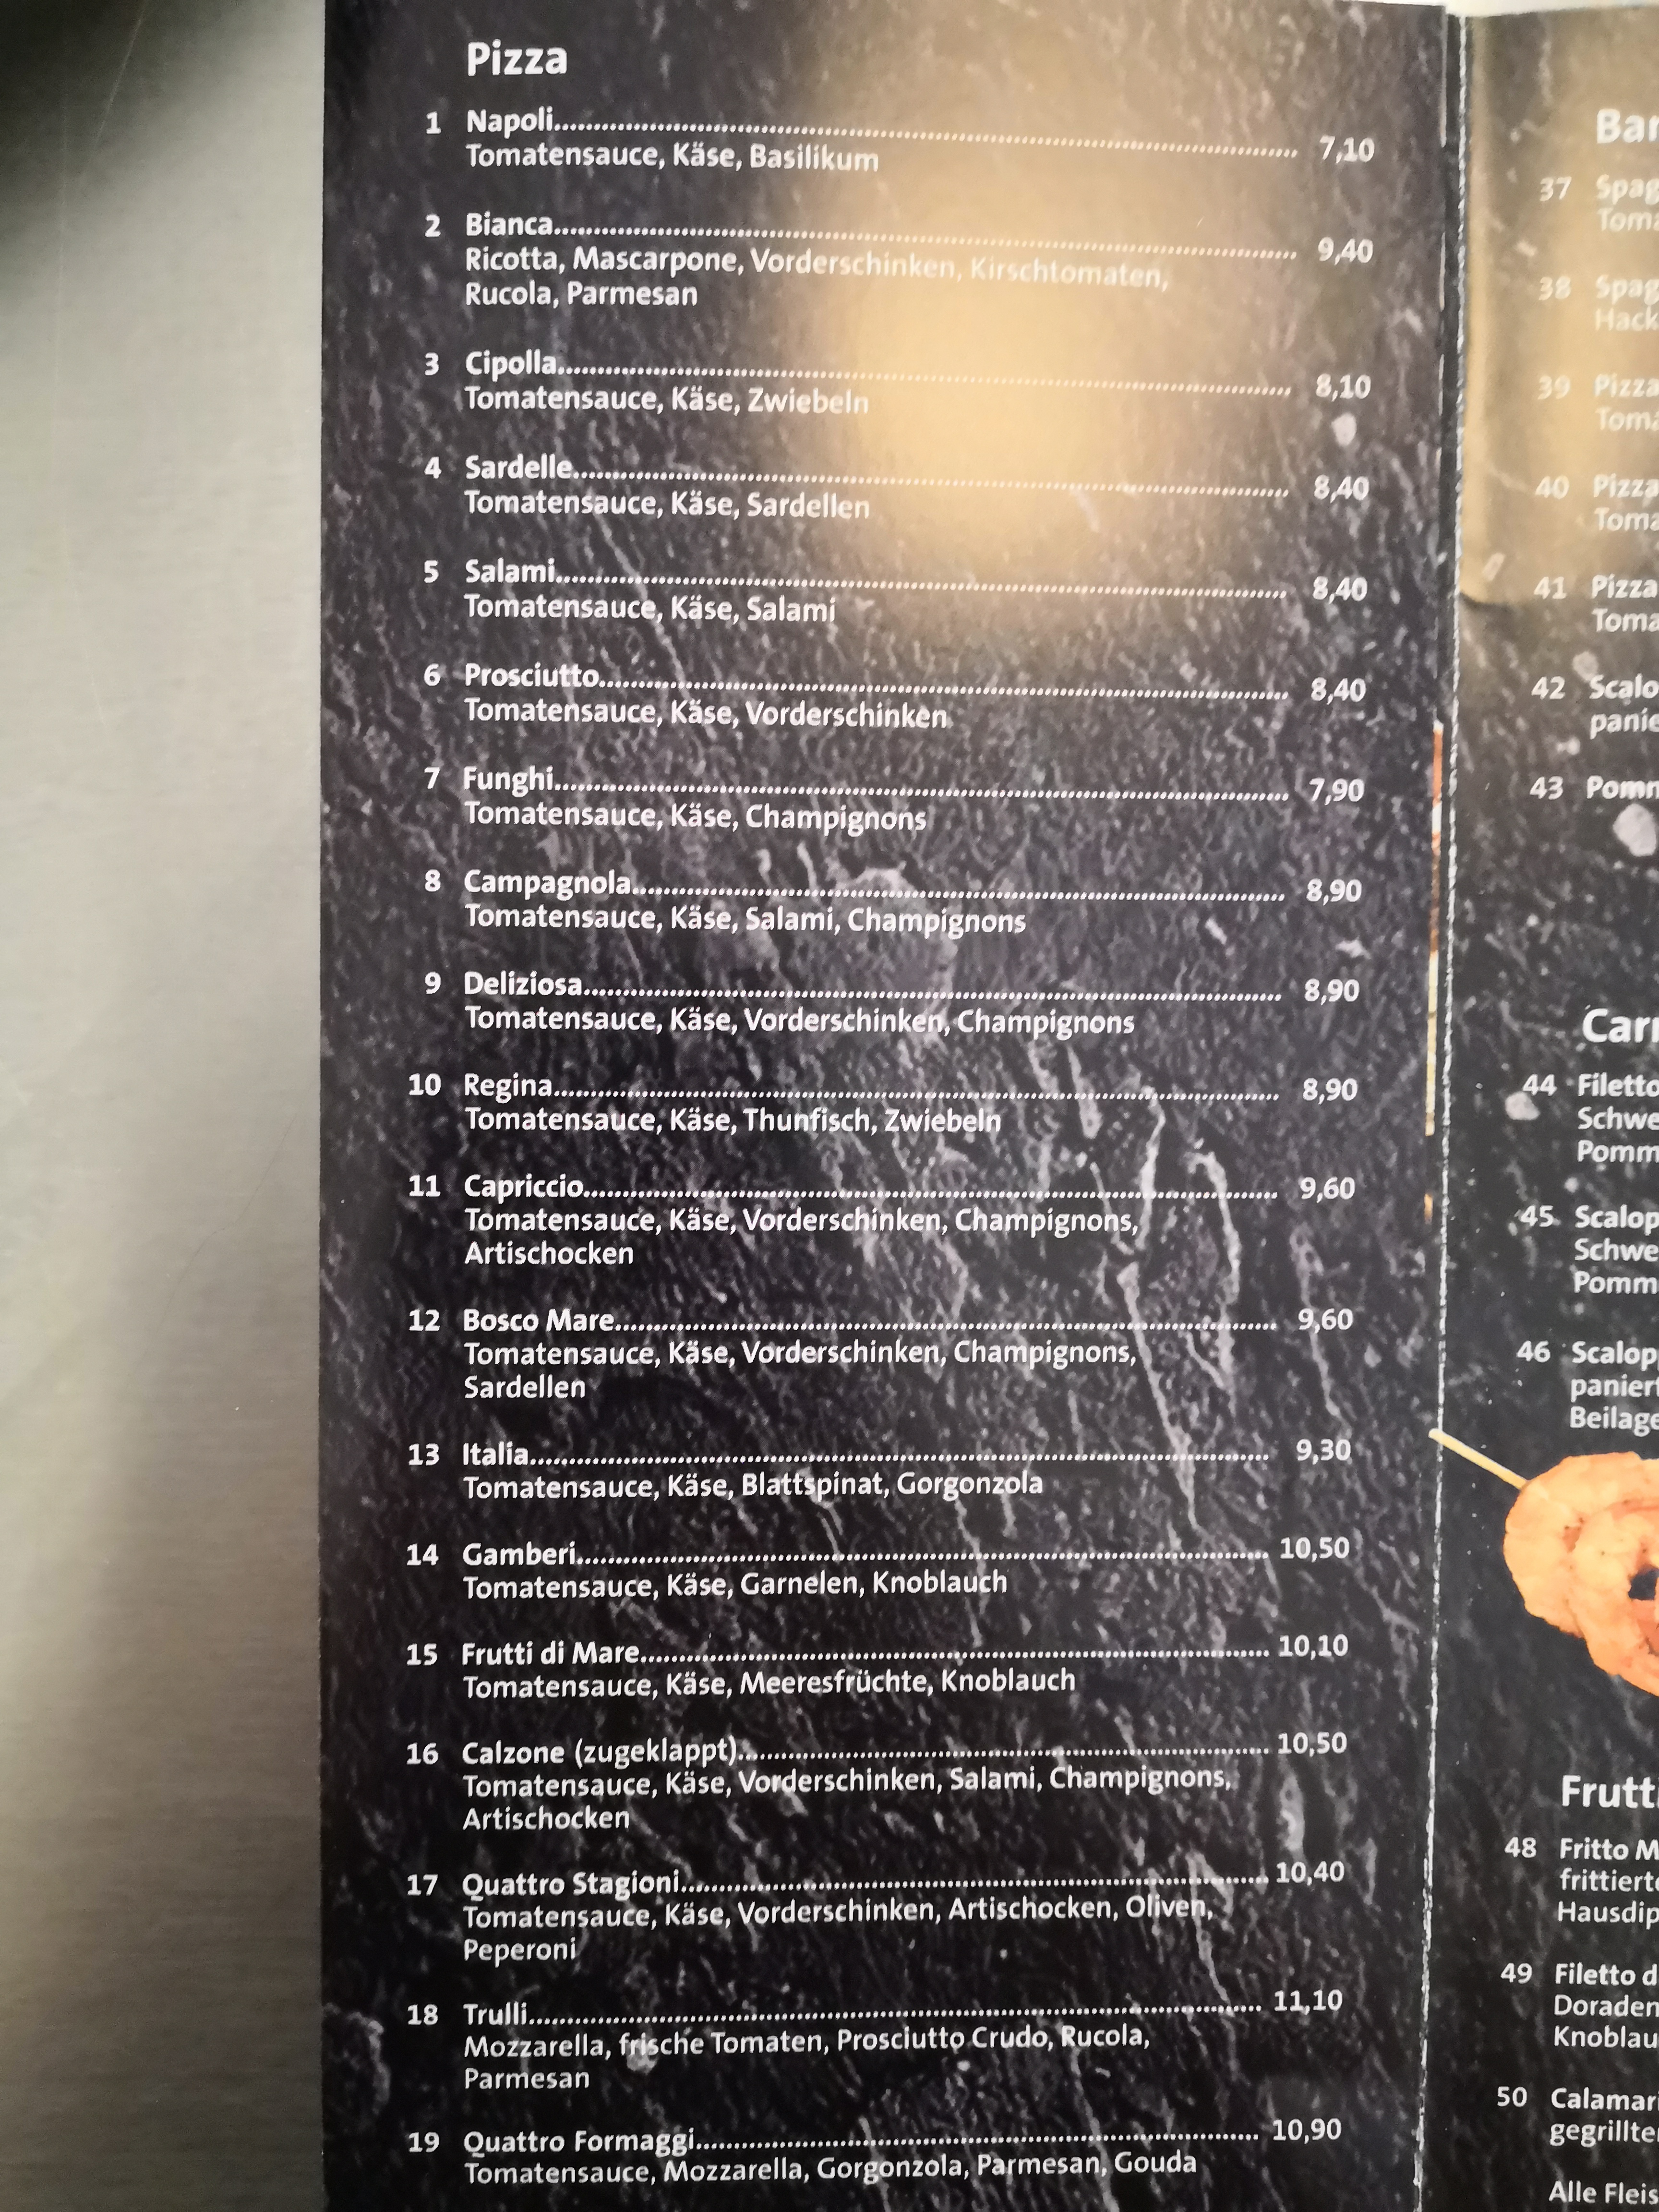 Pizza
1 Napoli 7,10
Tomatensauce, Käse, Basilikum
2 Bianca 9,40
Ricotta, Mascarpone, Vorderschinken, Kirschtomaten,
Rucola, Parmesan
3 Cipolla 8,10
Tomatensauce, Käse, Zwiebeln
4 Sardelle 8,40
Tomatensauce, Käse, Sardellen
5 Salami 8,40
Tomatensauce, Käse, Salami
6 Prosciutto 8,40
Tomatensauce, Käse, Vorderschinken
7 Funghi 7,90
Tomatensauce, Käse, Champignons
8 Campagnola 8,90
Tomatensauce, Käse, Salami, Champignons
9 Deliziosa 8,90
Tomatensauce, Käse, Vorderschinken, Champignons
10 Regina 8,90
Tomatensauce, Käse, Thunfisch, Zwiebeln
11 Capriccio 9,60
Tomatensauce, Käse, Vorderschinken, Champignons,
Artischocken
12 Bosco Mare 9,60
Tomatensauce, Käse, Vorderschinken, Champignons,
Sardellen
13 Italia 9,30
Tomatensauce, Käse, Blattspinat, Gorgonzola
14 Gamberi 10,50
Tomatensauce, Käse, Garnelen, Knoblauch
15 Frutti di Mare 10,10
Tomatensauce, Käse, Meeresfrüchte, Knoblauch
16 Calzone (zugeklappt) 10,50
Tomatensauce, Käse, Vorderschinken, Salami, Champignons,
Artischocken
17 Quattro Stagioni 10,40
Tomatensauce, Käse, Vorderschinken, Artischocken, Oliven,
Peperoni
18 Trulli 11,10
Mozzarella, frische Tomaten, Prosciutto Crudo, Rucola,
Parmesan
19 Quattro Formaggi 10,90
Tomatensauce, Mozzarella, Gorgonzola, Parmesan, Gouda
37
38
39 Pizza
40 Pizza
41 Pizza
42
43
44 Filetto
45
46
48 Fritto
49 Filetto
50
Alle